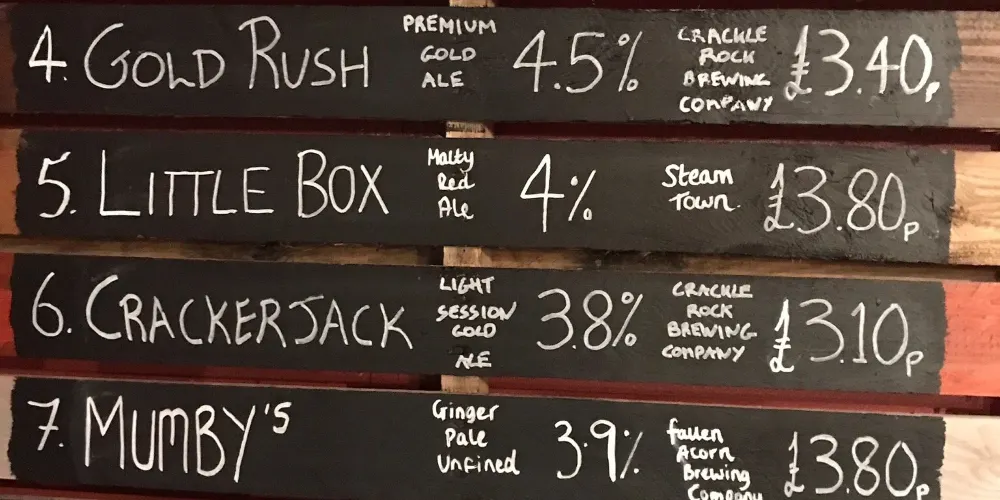 4. GOLD RUSH PREMIUM GOLD ALE 4.5% CRACKLE ROCK BREWING COMPANY £3.40p
5. LITTLE BOX Malty Red Ale 4% Steam Town. £3.80p
6. CRACKERJACK LIGHT SESSION GOLD ALE 3.8% CRACKLE ROCK BREWING COMPANY £3.10p
7. MUMBY'S Ginger Pale Unfined 3.9% fallen Acorn Brewing Company £3.80p